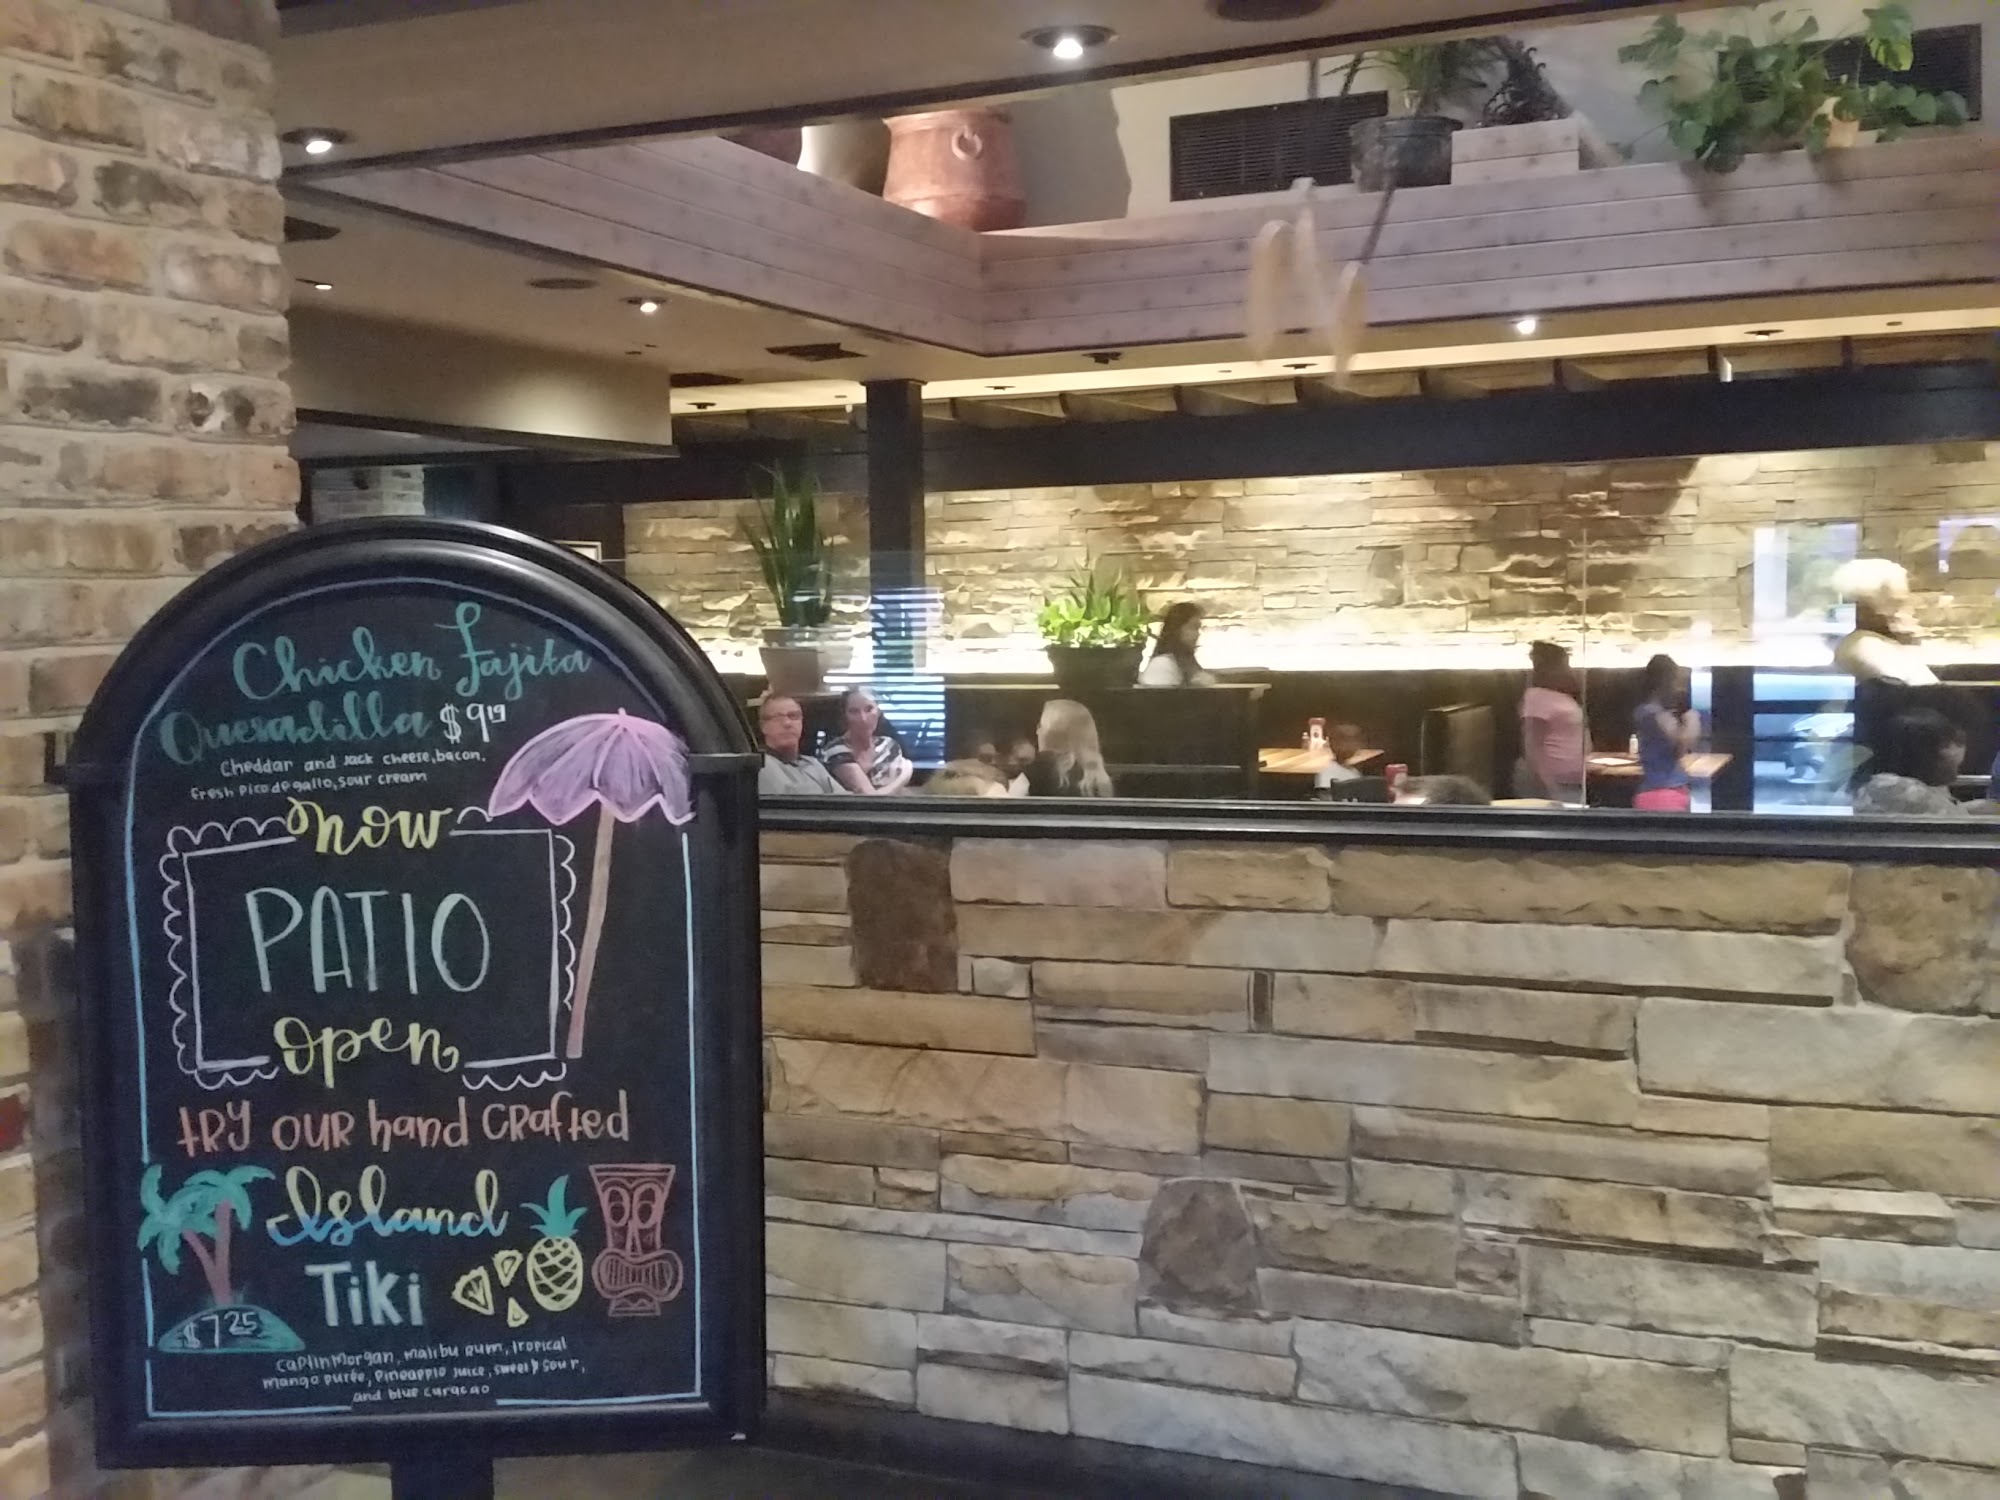 Chicken Fajita
Quesadilla $9.19
Cheddar and Jack cheese, bacon,
fresh Pico de gallo, sour cream
now
PATIO
open
tRY OUR hand CRafted
Island
Tiki
$7.25
CaptinMorgan, malibu Rum, tropical
mango purée, pineapple juice, sweet & sour,
and blue curacao